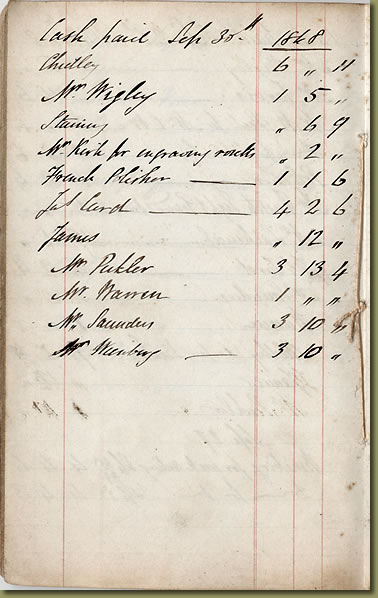 Cash paid Sep 30th 1848
Chidley 6 „ 11
Mr Wigley 1 5 „
„ 6 9
Mr Kirk for engraving „ 2 „
French Polisher — 1 1 6
Jas Card — 4 2 6
James „ 12 „
Mr 3 13 4
Mr. Warren 1 „ „
Mr Saunders 3 10 „
Mr — 3 10 „